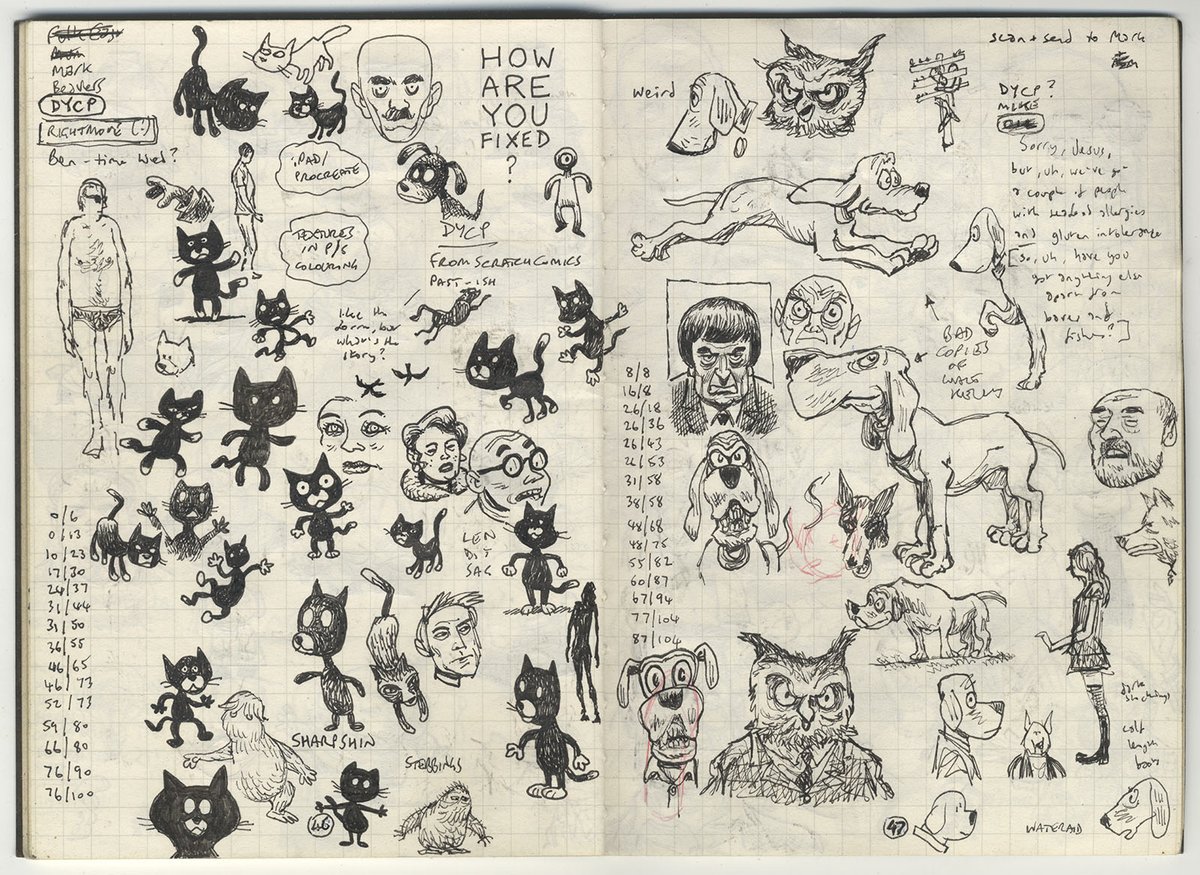 MARK
BEAVERS
DYCP
RIGHTMOVE (:)
Ben - time Wed?
iPAD/
PROCREATE
TEXTURES
IN P/S
COLOURING
HOW
ARE
YOU
FIXED
?
DYCP
FROM SCRATCH COMICS
PAST-ISH
like the
but
what's the
story?
LEN
DIT
SAC
0/6
0/13
10/23
17/30
24/37
31/44
31/50
36/55
46/65
46/73
52/73
59/80
66/80
76/90
76/100
SHARPSHIN
STEBBINGS
46
weird
scan + send to Mark
DYCP?
MIKE
Sorry, Jesus,
but, uh, we've got
a couple of people
with seafood allergies
and gluten intolerance
[so, uh, have you
got anything else
apart from
loaves and
fishes?]
BAD
COPIES
OF
8/8
16/8
26/18
26/36
26/43
26/53
31/58
38/58
48/68
48/75
55/82
60/87
67/94
77/104
87/104
dark
stockings
calf
length
boots
47
WATERAID